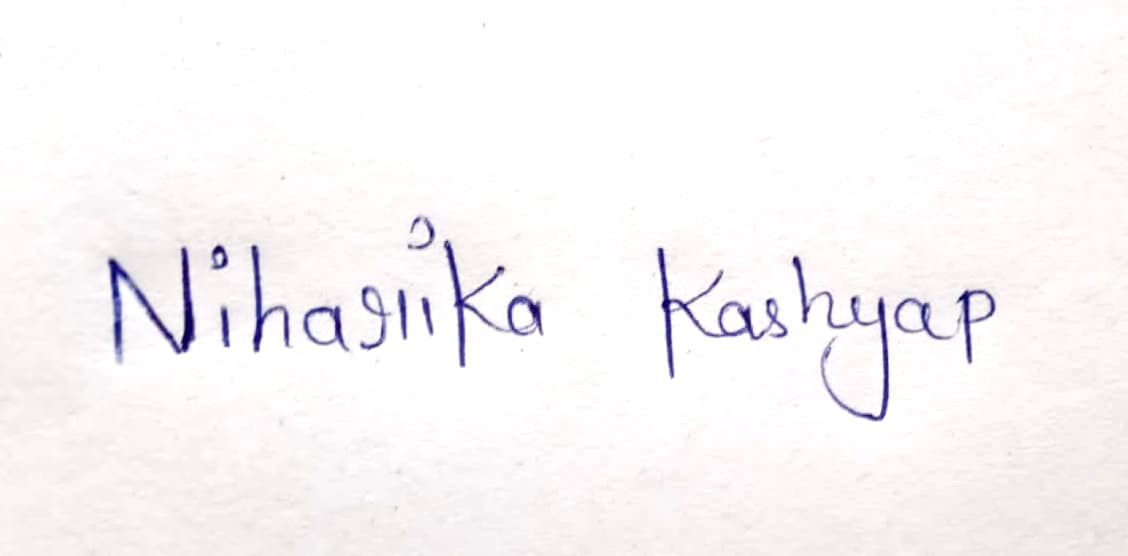 Niharika Kashyap